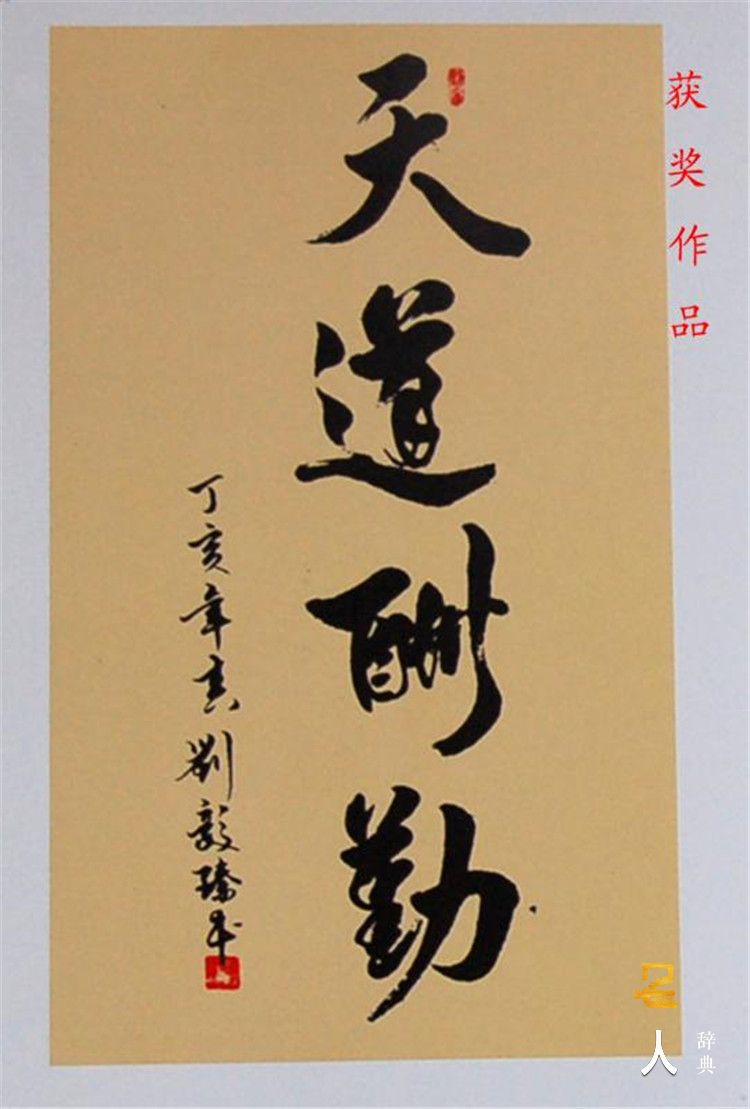 获奖作品
天道酬勤
丁亥年 劉毅臻书
名人
辞典